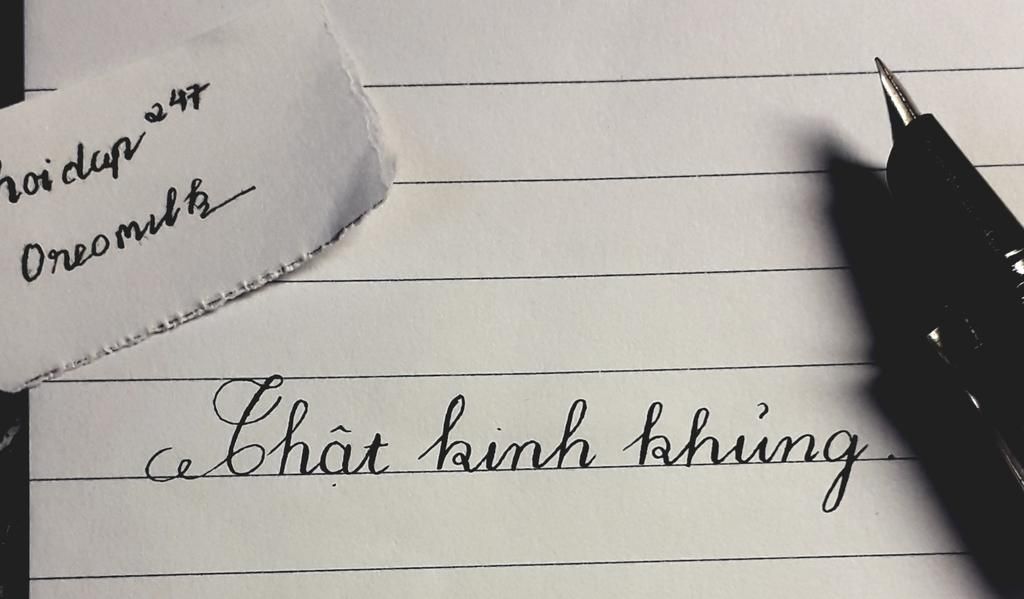 hoidap247
Oreomilk
Thật kinh khủng.